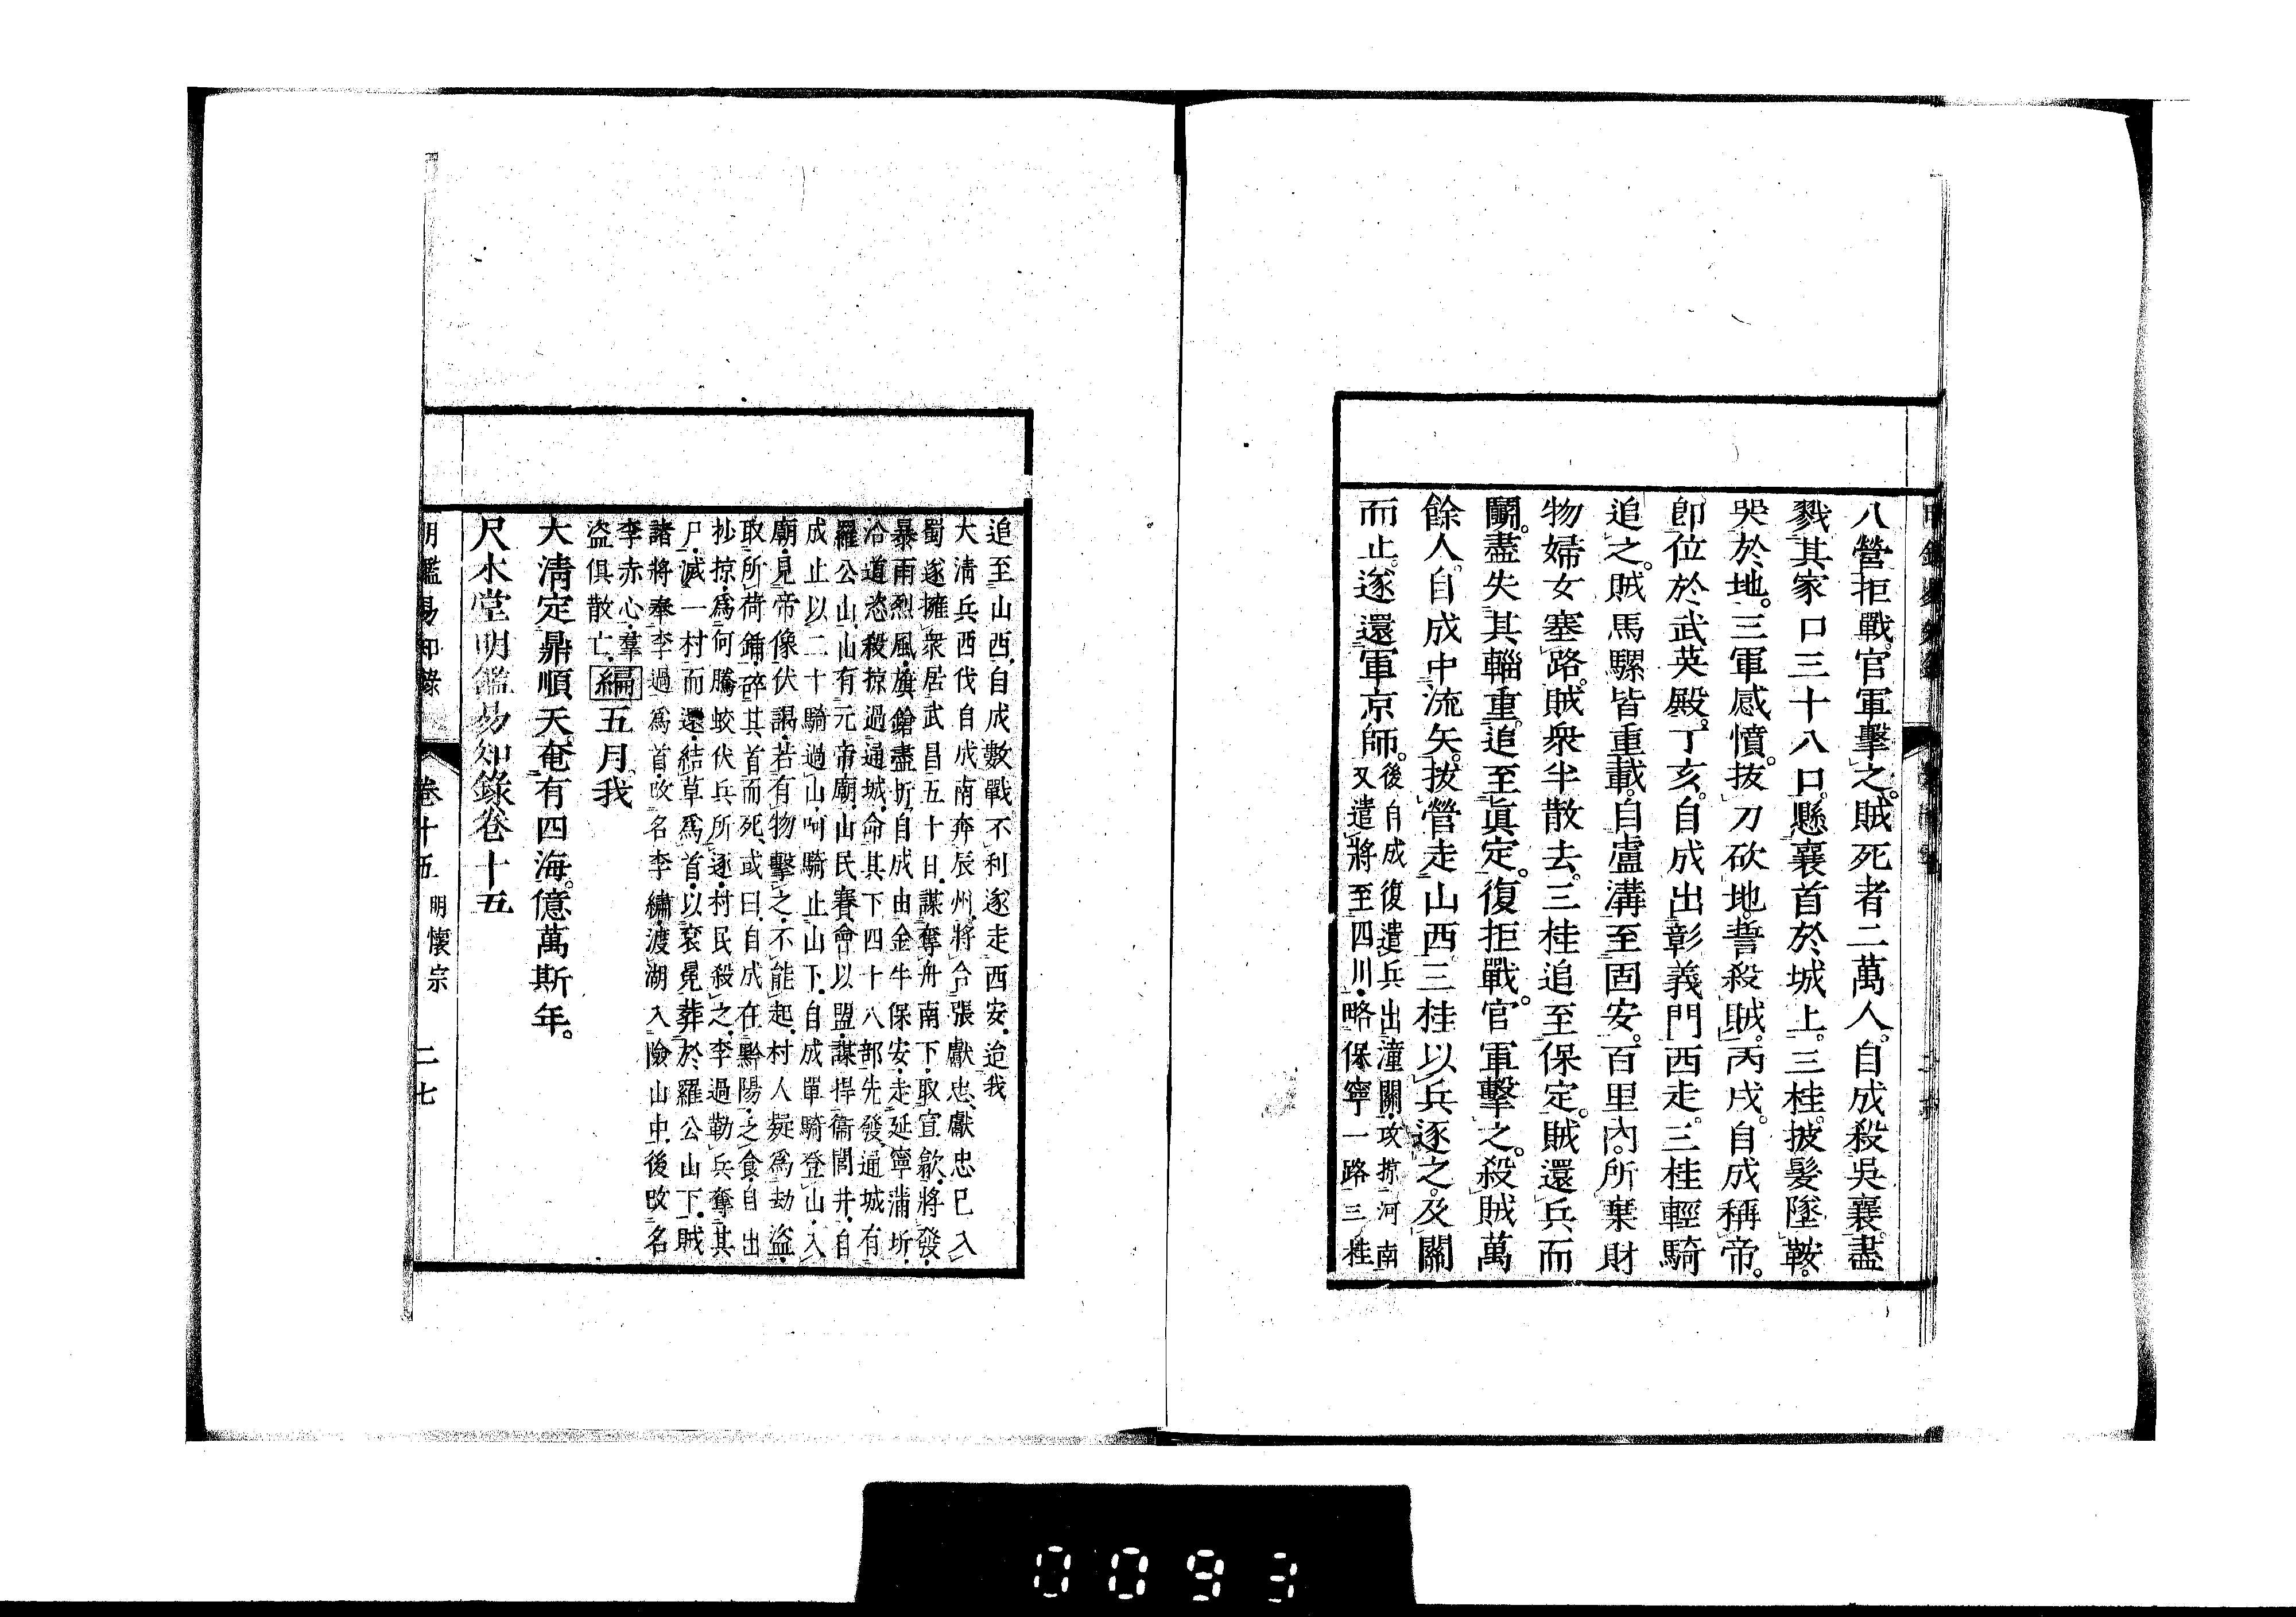 八營拒戰。官軍擊之。賊死者二萬人。自成殺吳襄。盡
戮其家口三十八口。懸襄首於城上。三桂。披髮墜鞍。
哭於地。三軍感憤。拔刀砍地。誓殺賊。丙戌。自成稱帝。
卽位於武英殿。丁亥。自成出彰義門西走。三桂輕騎
追之。賊馬騾皆重載。自盧溝至固安。百里內。所棄財
物婦女塞路。賊衆半散去。三桂追至保定。賊還兵而
鬭。盡失其輜重。追至眞定。復拒戰。官軍擊之。殺賊萬
餘人。自成中流矢。拔營走山西。三桂以兵逐之。及關
而止。遂還軍京師。
後自成復遣兵出潼關、攻掠河南
又遣將至四川、略保寧一路三桂
追至山西、自成數戰不利遂走西安、迨我
大淸兵西伐自成南奔辰州、將合張獻忠、獻忠已入
蜀遂擁衆居武昌五十日、謀奪舟南下、取宣歙、將發、
暴雨烈風、旗鎗盡折、自成由金牛保安、走延寧蒲圻、
沿道恣殺掠過通城、命其下四十八部先發、通城有
羅公山、山有元帝廟、山民賽會以盟、謀捍衞閭井、自
成止以二十騎過山、呵騎止山下、自成單騎登山、入
廟、見帝像伏謁、若有物擊之、不能起、村人疑爲劫盜、
取所荷鍤、碎其首而死、或曰、自成在黔陽、之食、自出
抄掠、爲何騰蛟伏兵所逐、村民殺之、李過勒兵奪其
尸、滅一村而還、結草爲首、以袞冕葬於羅公山下、賊
諸將奉李過爲首、改名李繡、渡湖入險山中、後改名
李赤心、羣
盜俱散亡、
編五月我
大淸定鼎順天。奄有四海。億萬斯年。
尺木堂明鑑易知錄卷十五
明鑑易知錄 卷十五 明懷宗 二七
0093